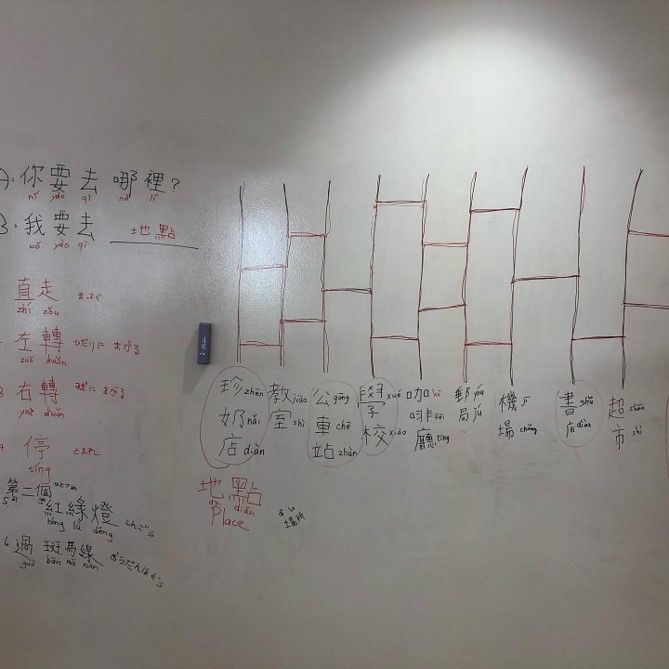 A: 你要去哪裡?
nǐ yào qù nǎ lǐ
B: 我要去 地點
wǒ yào qù
直走 まっすぐ
zhí zǒu
左轉 ひだりに まがる
zuǒ zhuǎn
右轉 みぎに まがる
yòu zhuǎn
停 とまれ
tíng
5. 第二個 紅綠燈 しんごう
hóng lǜ dēng
6. 過 斑馬線 おうだんほどう
guò bān mǎ xiàn
珍奶店 zhēn nǎi diàn
教室 jiào shì
公車站 gōng chē zhàn
學校 xué xiào
咖啡廳 kā fēi tīng
郵局 yóu jú
機場 jī chǎng
書店 shū diàn
超市 chāo shì
地點
dì diǎn
Place
場所